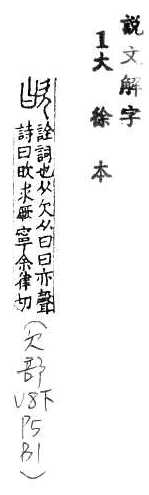 説文解字
1大徐本
欥
詮詞也从欠从曰曰亦聲
詩曰欥求厥寧余律切
(欠部V8下P5B1)